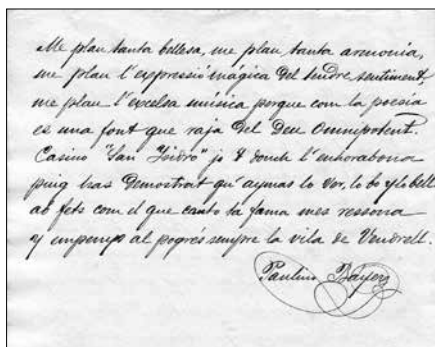 Me plau tanta bellesa, me plau tanta armonía,
me plau l'expressió mágica del tendre sentiment,
me plau l'excelsa música porque com la poesía
es una font que raja del Deu Omnipotent.
Casino "San Isidro" jo t donch l'enhorabona
puig has demostrat qu'aymas lo ver, lo bo y lo bell
ab fets com el que canto ta fama mes ressona
y empenys al pogrés sempre la vila de Vendrell.
Paulino Bayer